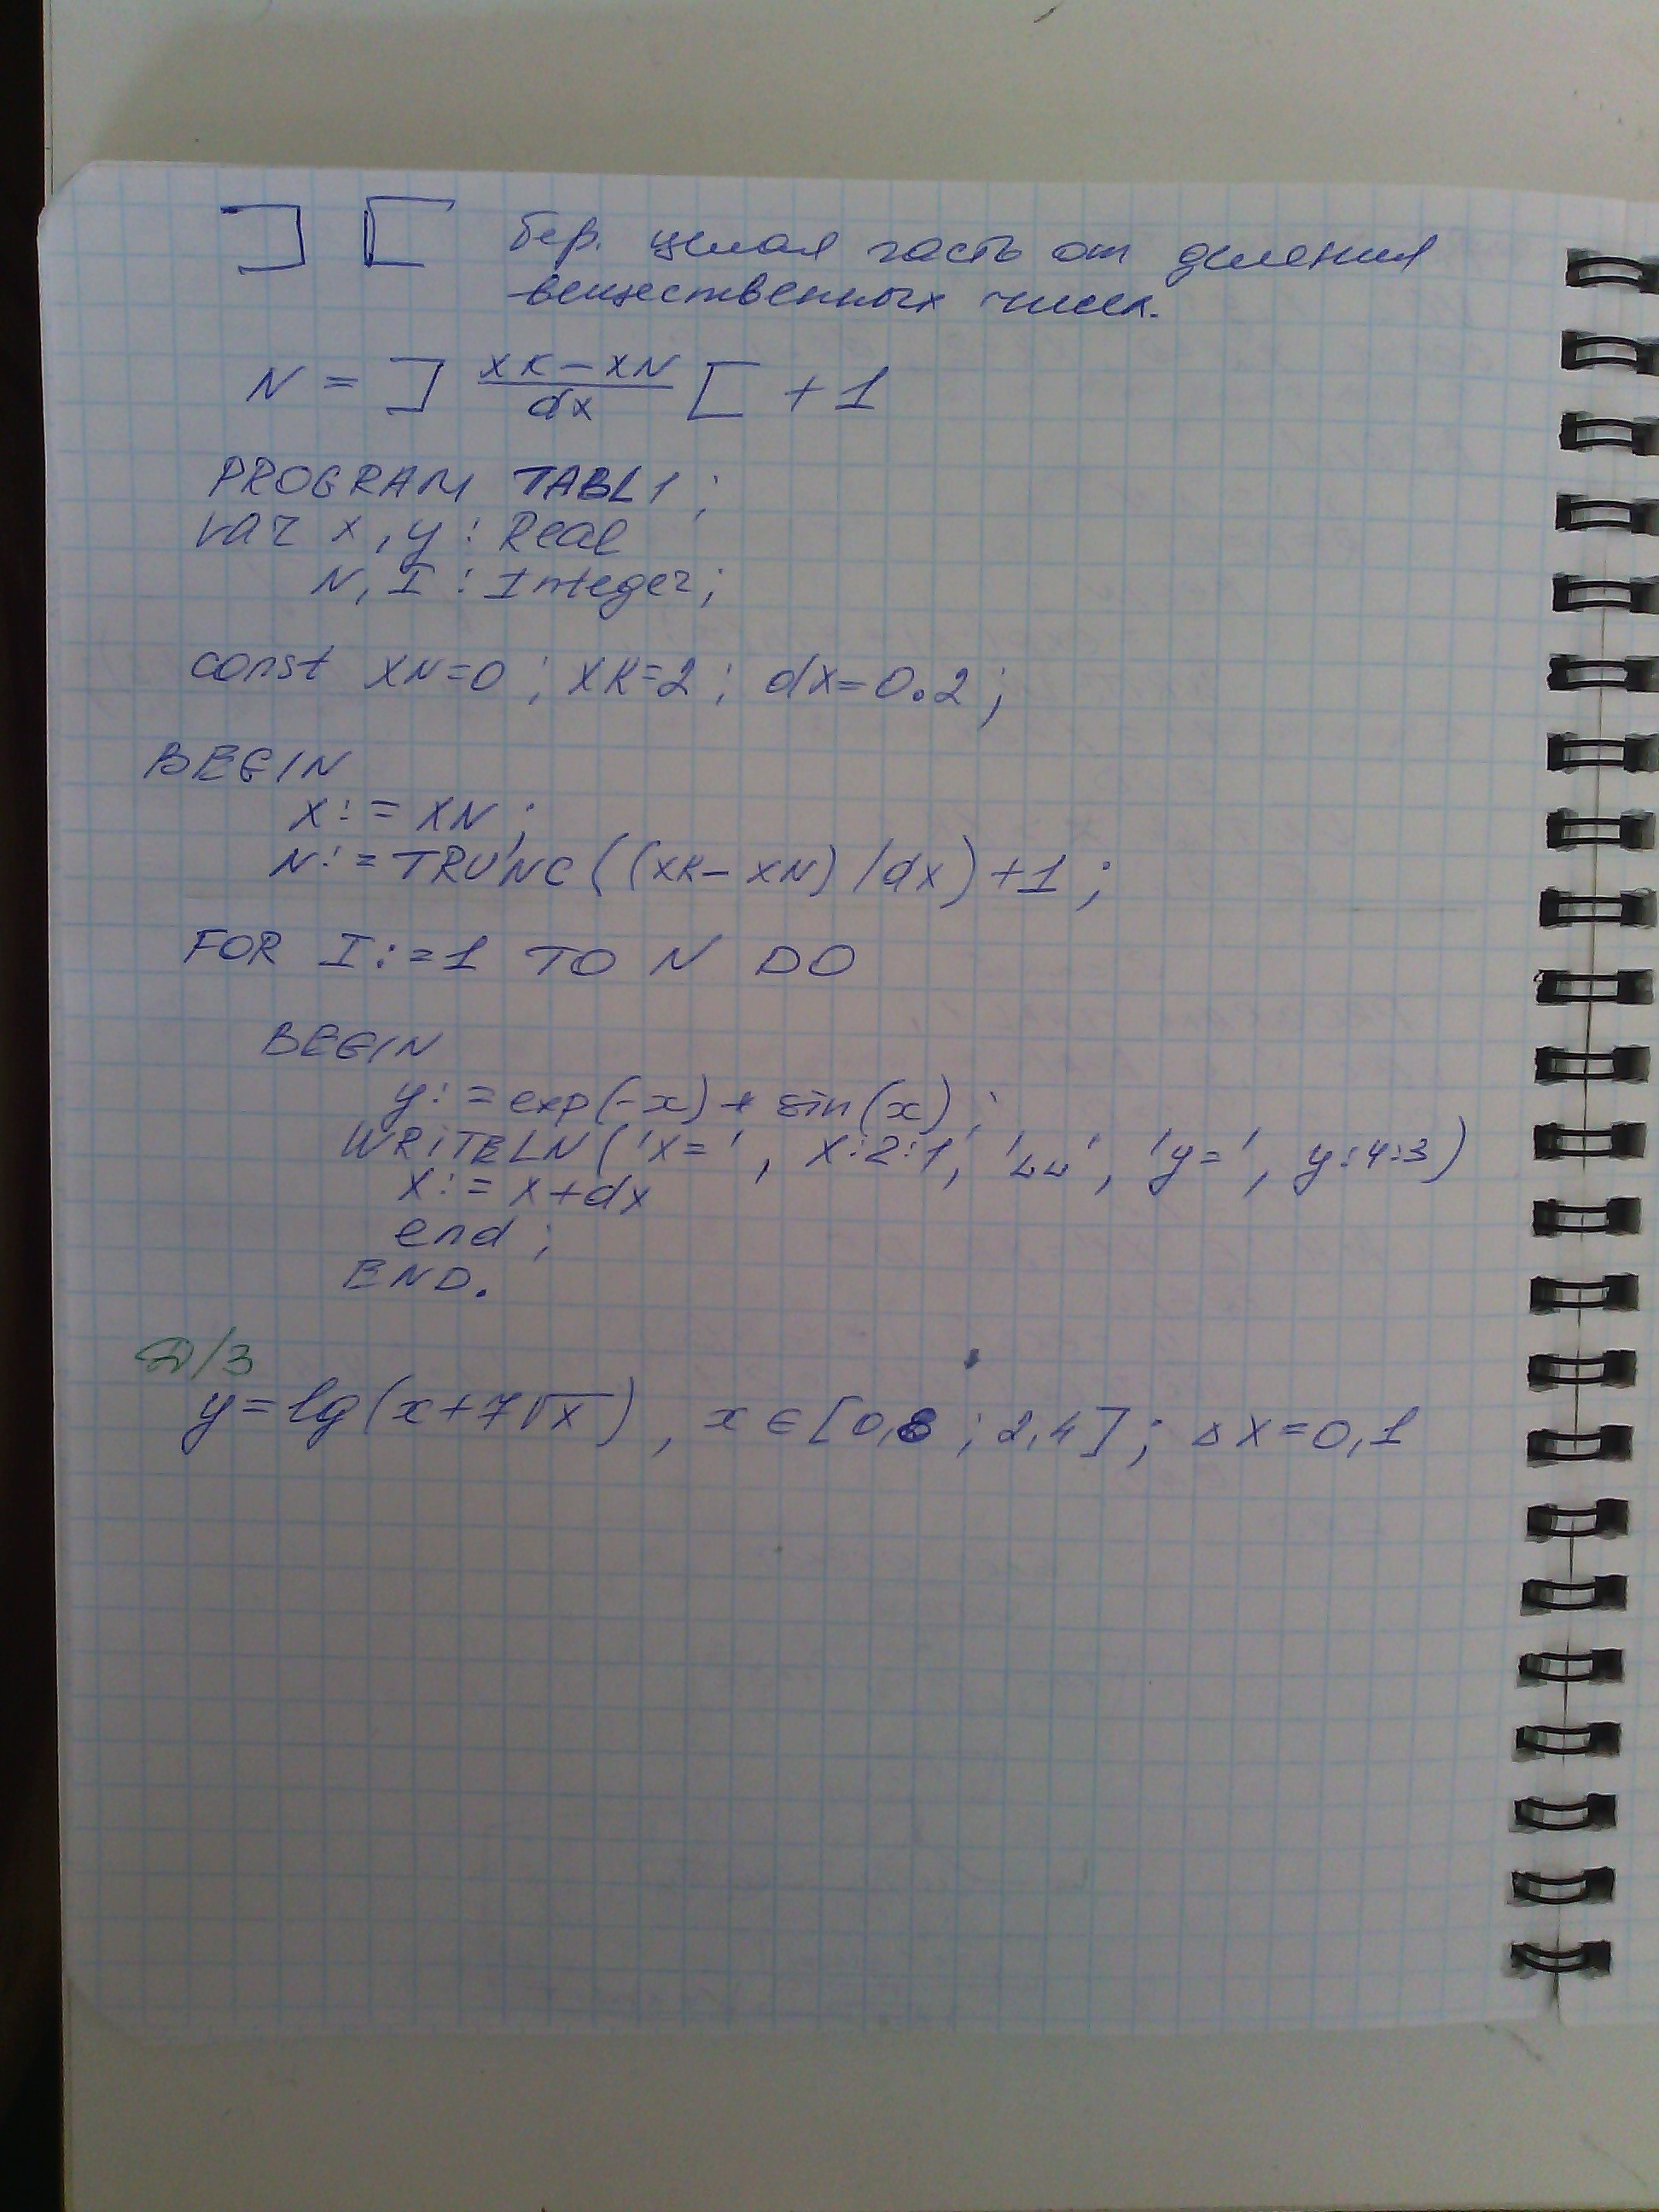 ] [ бер. целая часть от деления
вещественных чисел.
N = ] (xк - xN)/dx [ + 1
PROGRAM TABL1;
var x, y : Real
N, I : Integer;
const XN=0; XK=2; dx=0.2;
BEGIN
X:= XN;
N:= TRUNC((XK-XN)/dx)+1;
FOR I:=1 TO N DO
BEGIN
y:= exp(-x)+ sin(x);
WRITELN('X=', X:2:1, '␣␣', 'y=', y:4:3)
X:= X+dx
end;
END.
Д/З
y=lg(x+7√x), x∈[0,8; 2,4]; ΔX=0,1